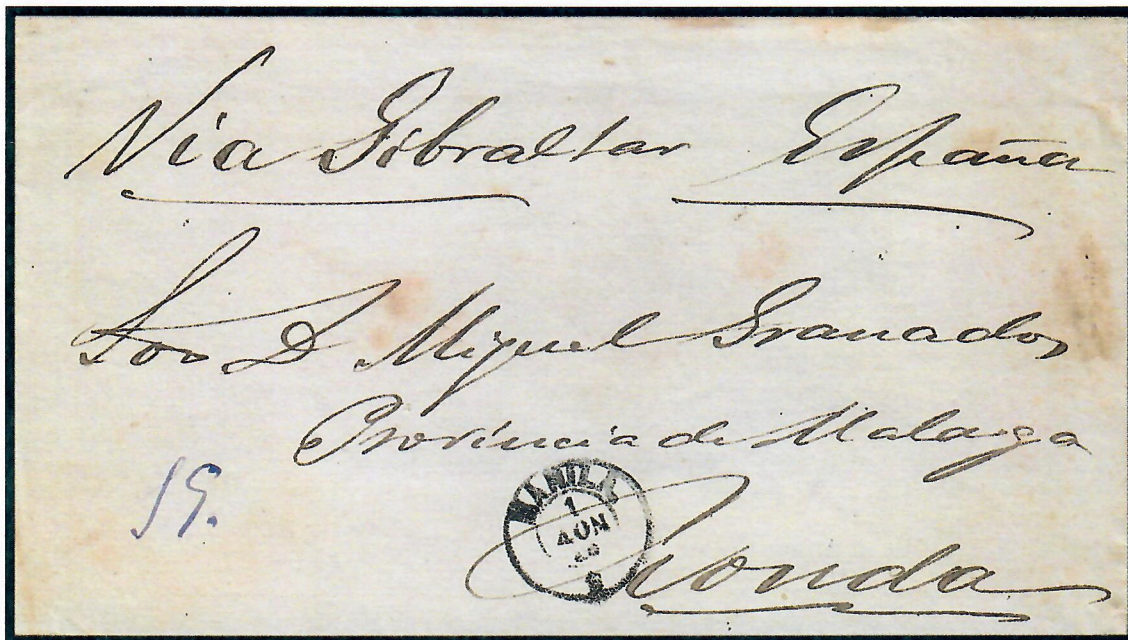 Via Gibraltar España
Sor D Miguel Granados
Provincia de Malaga
19.
MANILA
1
Ronda